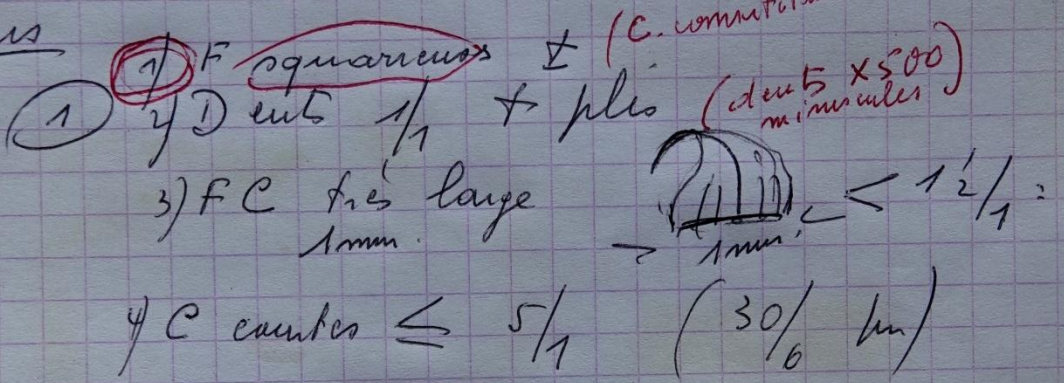 1) F squarieuses ± (C.
① 2) Dents 1/1 + plis (dents x500 minuscules)
3) FC très large < 1½/1 =
1mm. → 1mm. <
4) C courtes ≤ 5/1 (30/6 )